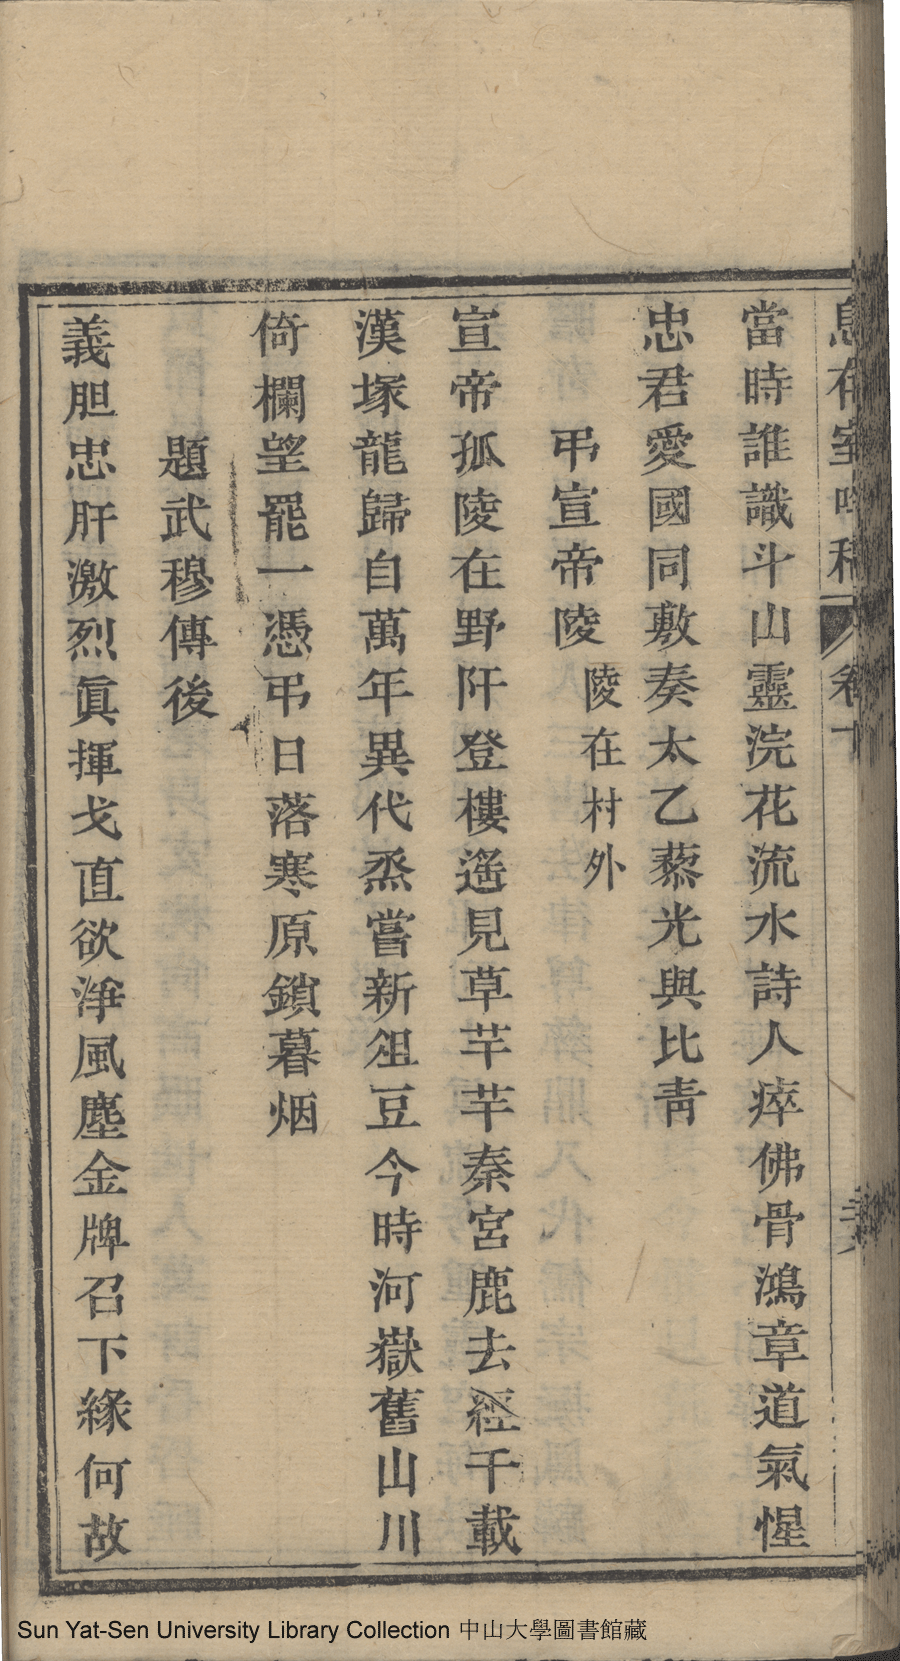 息存室吟稿 卷十
當時誰識斗山靈浣花流水詩人瘁佛骨鴻章道氣惺
忠君愛國同敷奏太乙藜光與比靑
弔宣帝陵 陵在村外
宣帝孤陵在野阡登樓遙見草芊芊秦宮鹿去經千載
漢塚龍歸自萬年異代烝嘗新俎豆今時河嶽舊山川
倚欄望罷一憑弔日落寒原鎖暮烟
題武穆傳後
義胆忠肝激烈眞揮戈直欲淨風塵金牌召下緣何故
Sun Yat-Sen University Library Collection 中山大學圖書館藏